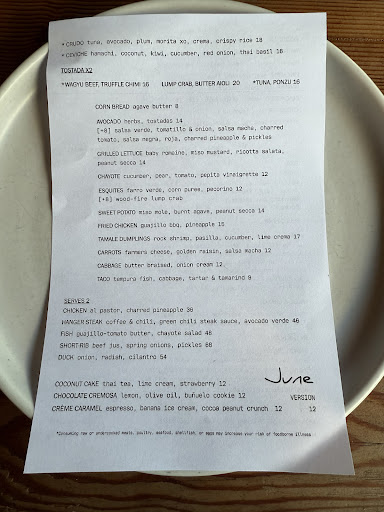 *CRUDO tuna, avocado, plum, morita xo, crema, crispy rice 18
*CEVICHE hamachi, coconut, kiwi, cucumber, red onion, thai basil 18
TOSTADA X2
*WAGYU BEEF, TRUFFLE CHIMI 16 LUMP CRAB, BUTTER AIOLI 20 *TUNA, PONZU 16
CORN BREAD agave butter 8
AVOCADO herbs, tostadas 14
[+8] salsa verde, tomatillo & onion, salsa macha, charred
tomato, salsa negra, roja, charred pineapple & pickles
GRILLED LETTUCE baby romaine, miso mustard, ricotta salata,
peanut secca 14
CHAYOTE cucumber, pear, tomato, pepita vinaigrette 12
ESQUITES farro verde, corn puree, pecorino 12
[+8] wood-fire lump crab
SWEET POTATO miso mole, burnt agave, peanut secca 14
FRIED CHICKEN guajillo bbq, pineapple 15
TAMALE DUMPLINGS rock shrimp, pasilla, cucumber, lime crema 17
CARROTS farmers cheese, golden raisin, salsa macha 12
CABBAGE butter bruised, onion cream 12
TACO tempura fish, cabbage, tartar & tamarind 9
SERVES 2
CHICKEN al pastor, charred pineapple 36
HANGER STEAK coffee & chili, green chili steak sauce, avocado verde 46
FISH guajillo-tomato butter, chayote salad 48
SHORT RIB beef jus, spring onions, pickles 68
DUCK onion, radish, cilantro 54
June
COCONUT CAKE thai tea, lime cream, strawberry 12
CHOCOLATE CREMOSA lemon, olive oil, buñuelo cookie 12 VERSION
CRÈME CARAMEL espresso, banana ice cream, cocoa peanut crunch 12 12
*Consuming raw or undercooked meats, poultry, seafood, shellfish, or eggs may increase your risk of foodborne illness